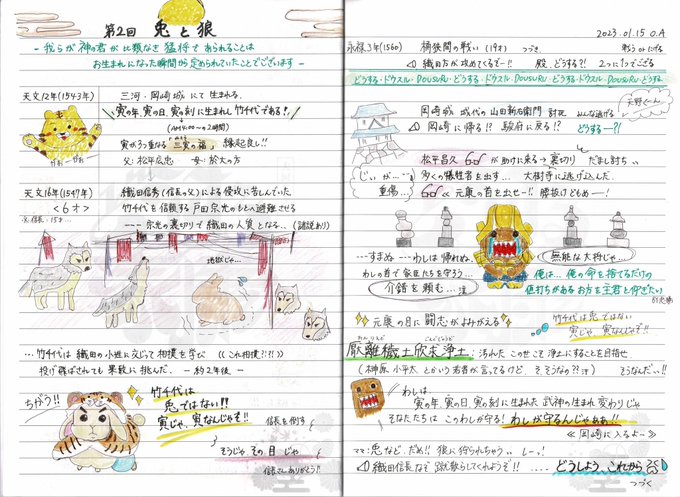 第2回 兎と狼
- 我らが神の君が比類なき猛将であられることは
お生まれになった瞬間から定められていたことでございます -
天文12年(1543年)
三河・岡崎城にて生まれる。
寅の年、寅の日、寅の刻に生まれし竹千代である!!
(AM4:00〜の2時間)
寅が3つ重なる 三寅の福、縁起良し!!
父:松平広忠 母:於大の方
がおー がおー
天文16年(1547年)
<6才>
織田信秀(信長の父)による侵攻に苦しんでいた。
竹千代を信頼する戸田宗光のもとへ避難させる
---- 宗光の裏切りで織田の人質となる‥(諸説あり)
地獄じゃ…
… 竹千代は織田の小姓に交じって相撲を学び ((これ相撲?!?!))
投げ飛ばされても果敢に挑んだ. - 約2年後 -
ちがう!!
竹千代は
兎ではない!!
寅じゃ、寅なんじゃぞ!!
信長を倒す
そうじゃその目じゃ
信長さんありがとう!!
2023.01.15 O.A
永禄3年(1560) 桶狭間の戦い (19才) つづき
戦う or にげる
織田信長が攻めてくるぞー!! 殿、どうする?! 2つに1つでござる
どうする・ドウスル・DOUSURU・どうする・ドウスル・DOUSURU・どうする・ドウスル・DOUSURU・どうする
岡崎城 城代の山田新右衛門 討死 みんな逃げる
天野ぐーん
岡崎に帰る!? 駿府に戻る!? どうするー?!
松平昌久 GO!が助けに来る→裏切り だまし討ち
じぃが…ごめ
多くの犠牲者を出す… 大樹寺に逃げ込んだ.
重傷…
GO! <元康の首を出せー!! 腰抜けどもめー!
…… すまぬ ---- わしは帰れぬ。
無能な大将じゃ…
わしの首で家臣たちを守ろう…
介錯を頼む…泣
俺は…俺の命を捨てるだけの
値打ちがあるお方を主君と仰ぎたい
元康の目に闘志がよみがえる
竹千代は兎ではない
寅じゃ、寅なんじゃぞ!!
厭離穢土欣求浄土
: 汚れたこのせこを浄土にすることを目指せ
(榊原小平太とかいう若者が言ってるけど、そうなの?汗) そうなんだぃ!!
わしは
寅の年、寅の日、寅の刻に生まれた武神の生まれ変わりじゃ
そなたたちはこのわしが守る! わしが守るんじゃああ!!
≪岡崎に入るよー≫
ママ:兎などだめ!! 狼に狩られちゃう… しーっ!
織田信長など蹴散らしてくれようぞ!! …. どうしよう、これから
つづく